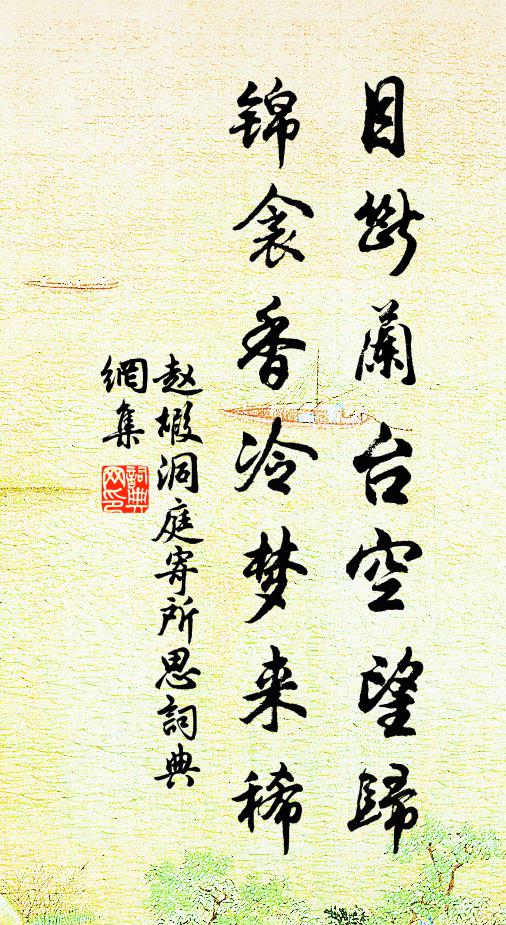 目断蘭台空望歸
锦衾香冷梦来稀
赵嘏洞庭寄所思詞典
網集
詞典
网印